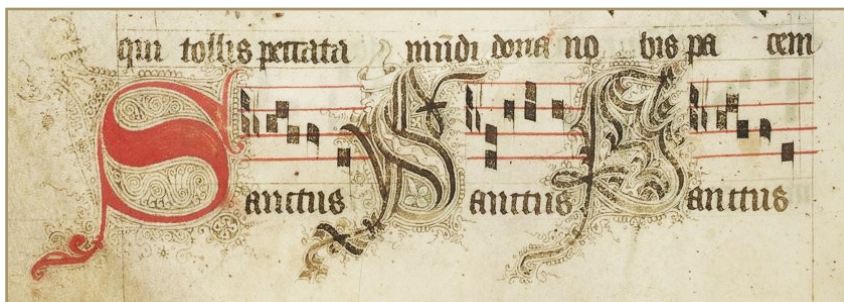 qui tollis peccata mũdi dona no bis pa cem
Sanctus Sanctus Sanctus